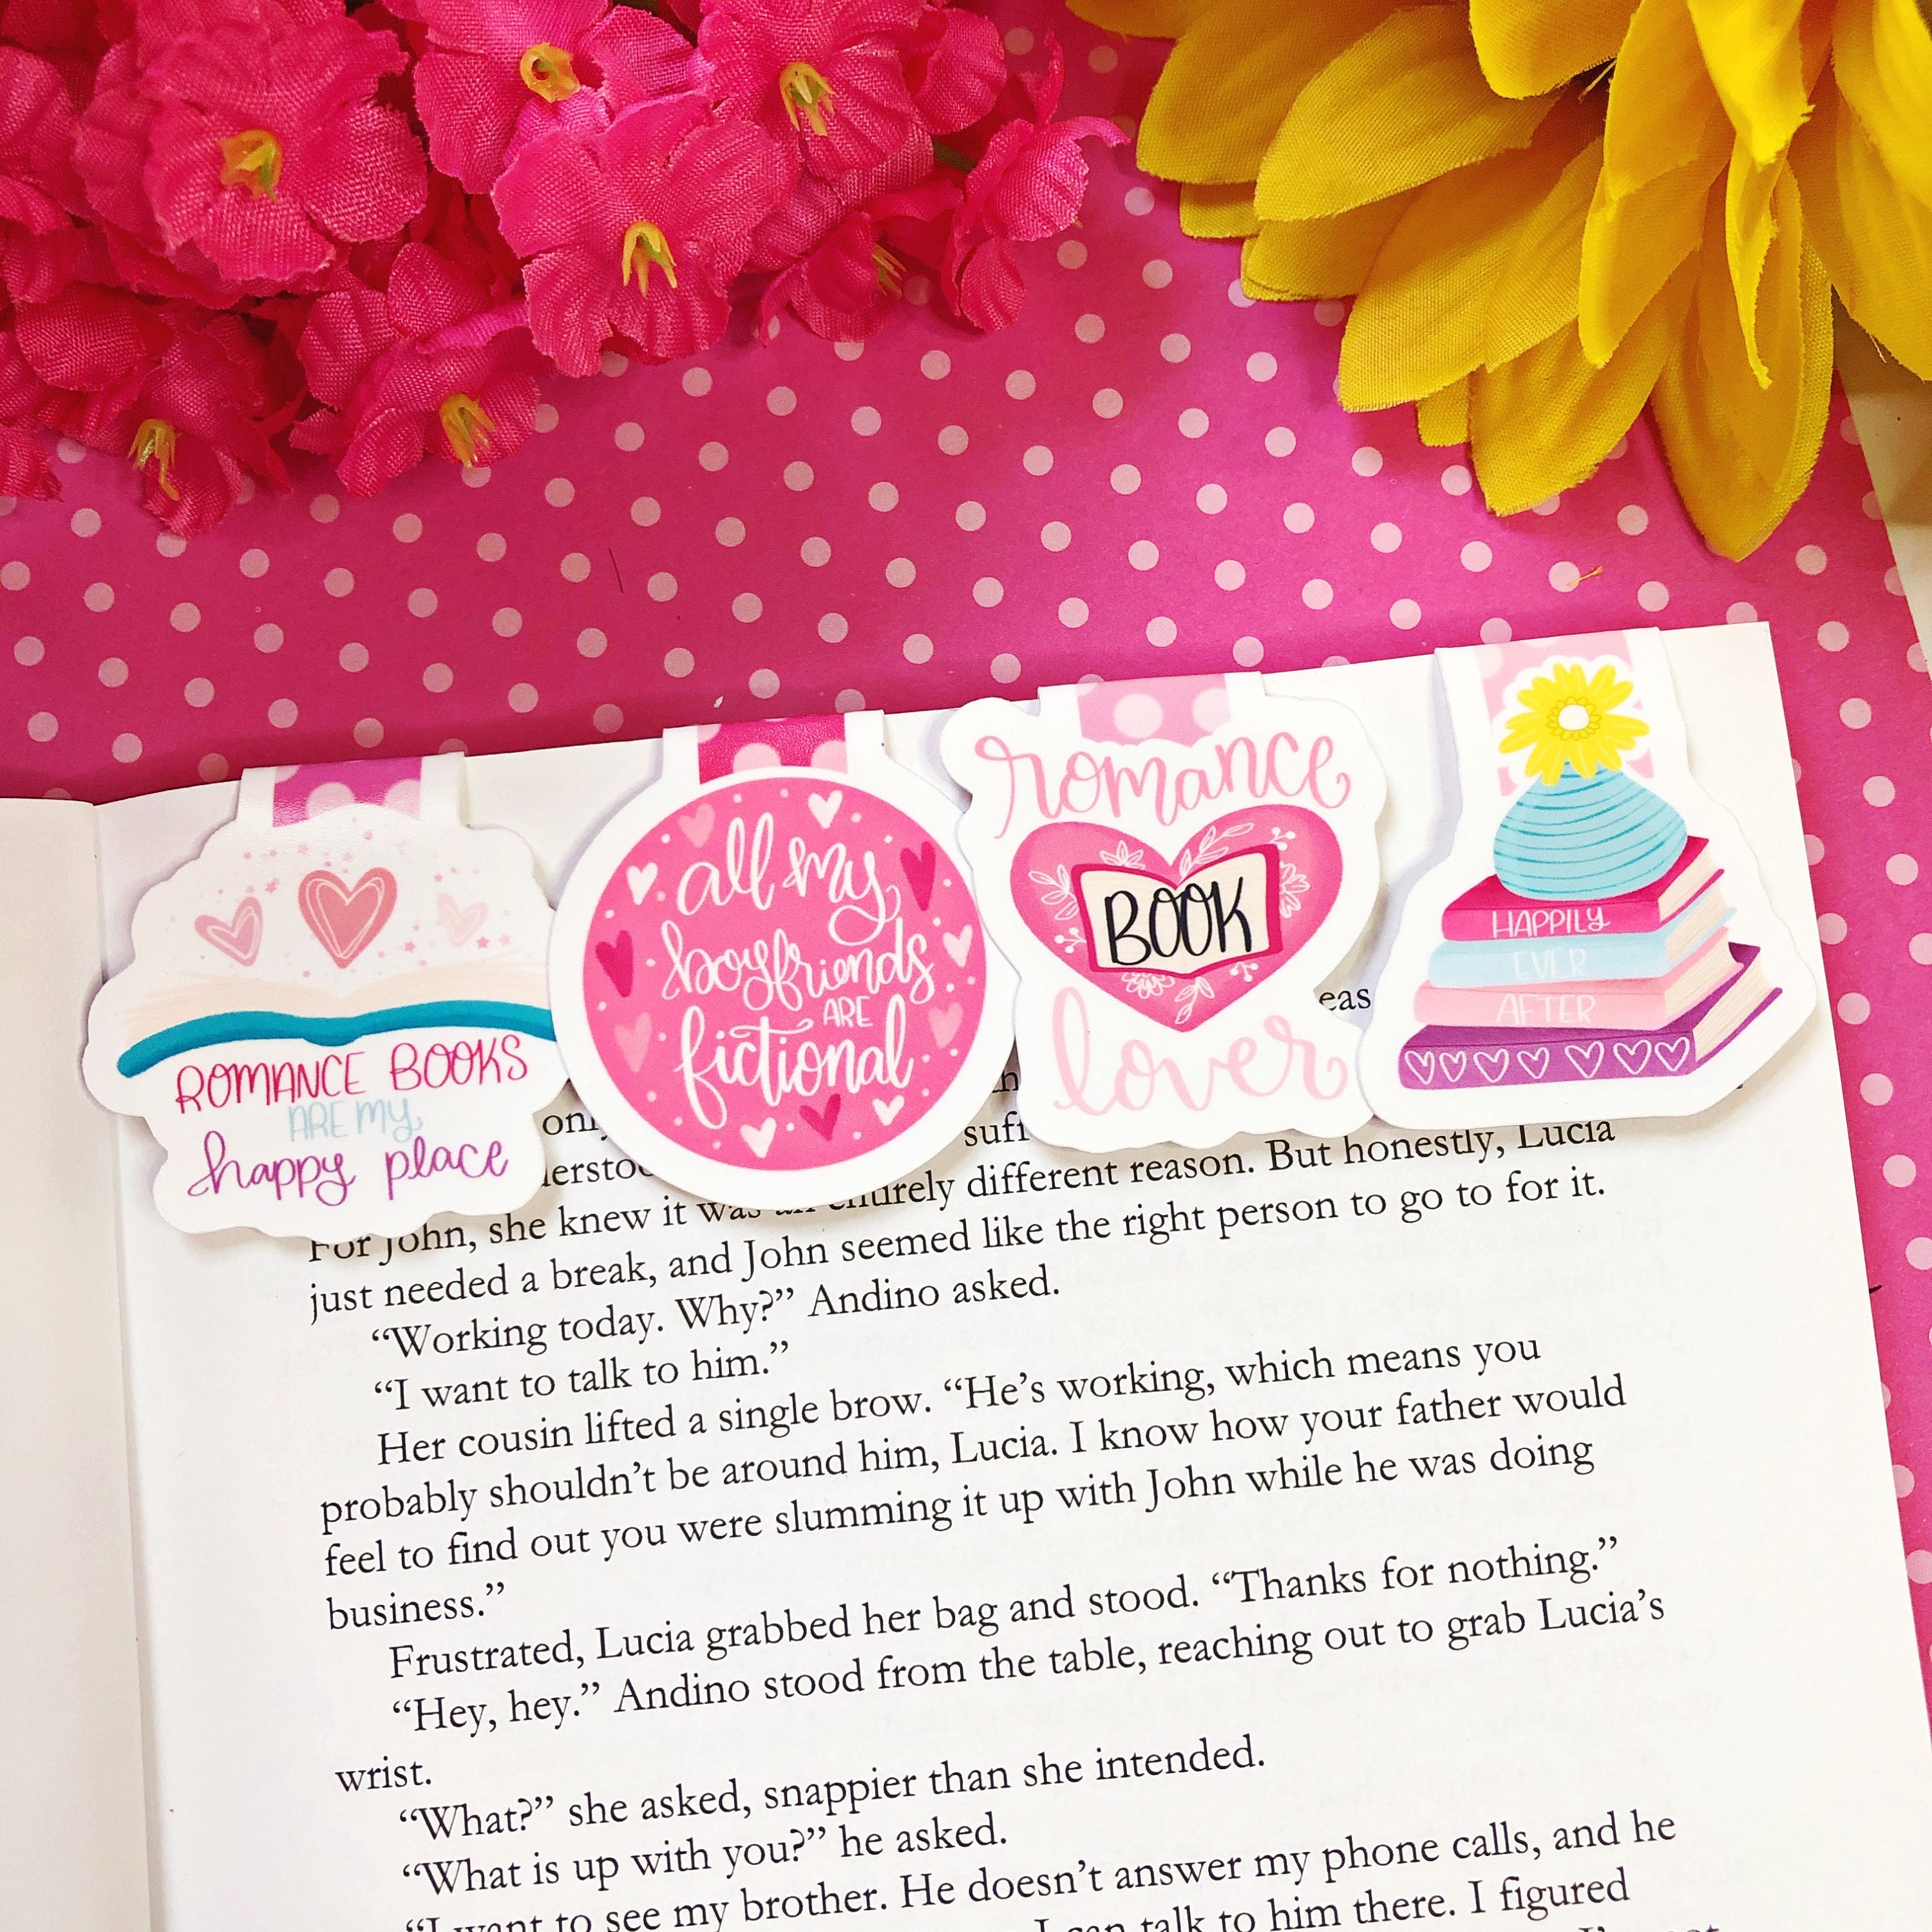 ROMANCE BOOKS
ARE MY
happy place
all my
boyfriends
ARE
fictional
romance
BOOK
lover
HAPPILY
EVER
AFTER
eas
suff
For John, she knew it was an entirely different reason. But honestly, Lucia
just needed a break, and John seemed like the right person to go to for it.
“Working today. Why?” Andino asked.
“I want to talk to him.”
Her cousin lifted a single brow. “He’s working, which means you
probably shouldn’t be around him, Lucia. I know how your father would
feel to find out you were slumming it up with John while he was doing
business.”
Frustrated, Lucia grabbed her bag and stood. “Thanks for nothing.”
“Hey, hey.” Andino stood from the table, reaching out to grab Lucia’s
wrist.
“What?” she asked, snappier than she intended.
“What is up with you?” he asked.
“I want to see my brother. He doesn’t answer my phone calls, and he
I can talk to him there. I figured